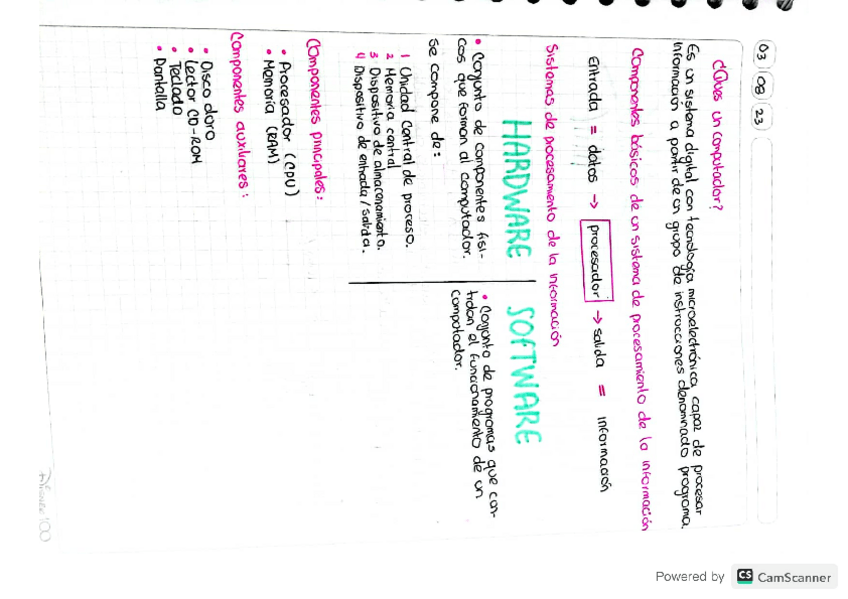 03 08 23
¿Qúes un computador?
Es un sistema digital con tecnología microelectrónica capaz de procesar
información a partir de un grupo de instrucciones denominado programa.
Componentes básicos de un sistema de procesamiento de la información
Entrada = datos → procesador → salida = información
Sistemas de procesamiento de la información
HARDWARE
• Conjunto de componentes físi-
cos que forman al computador.
Se compone de:
1 Unidad Central de proceso.
2 Memoria central
3 Dispositivo de almacenamiento.
4 Dispositivo de entrada/salida.
SOFTWARE
• Conjunto de programas que con-
trolan el funcionamiento de un
computador.
Componentes principales:
• Procesador (CPU)
• Memoria (RAM)
Componentes auxiliares:
• Disco duro
• Lector CD-ROM
• Teclado
• Pantalla
Powered by CS CamScanner